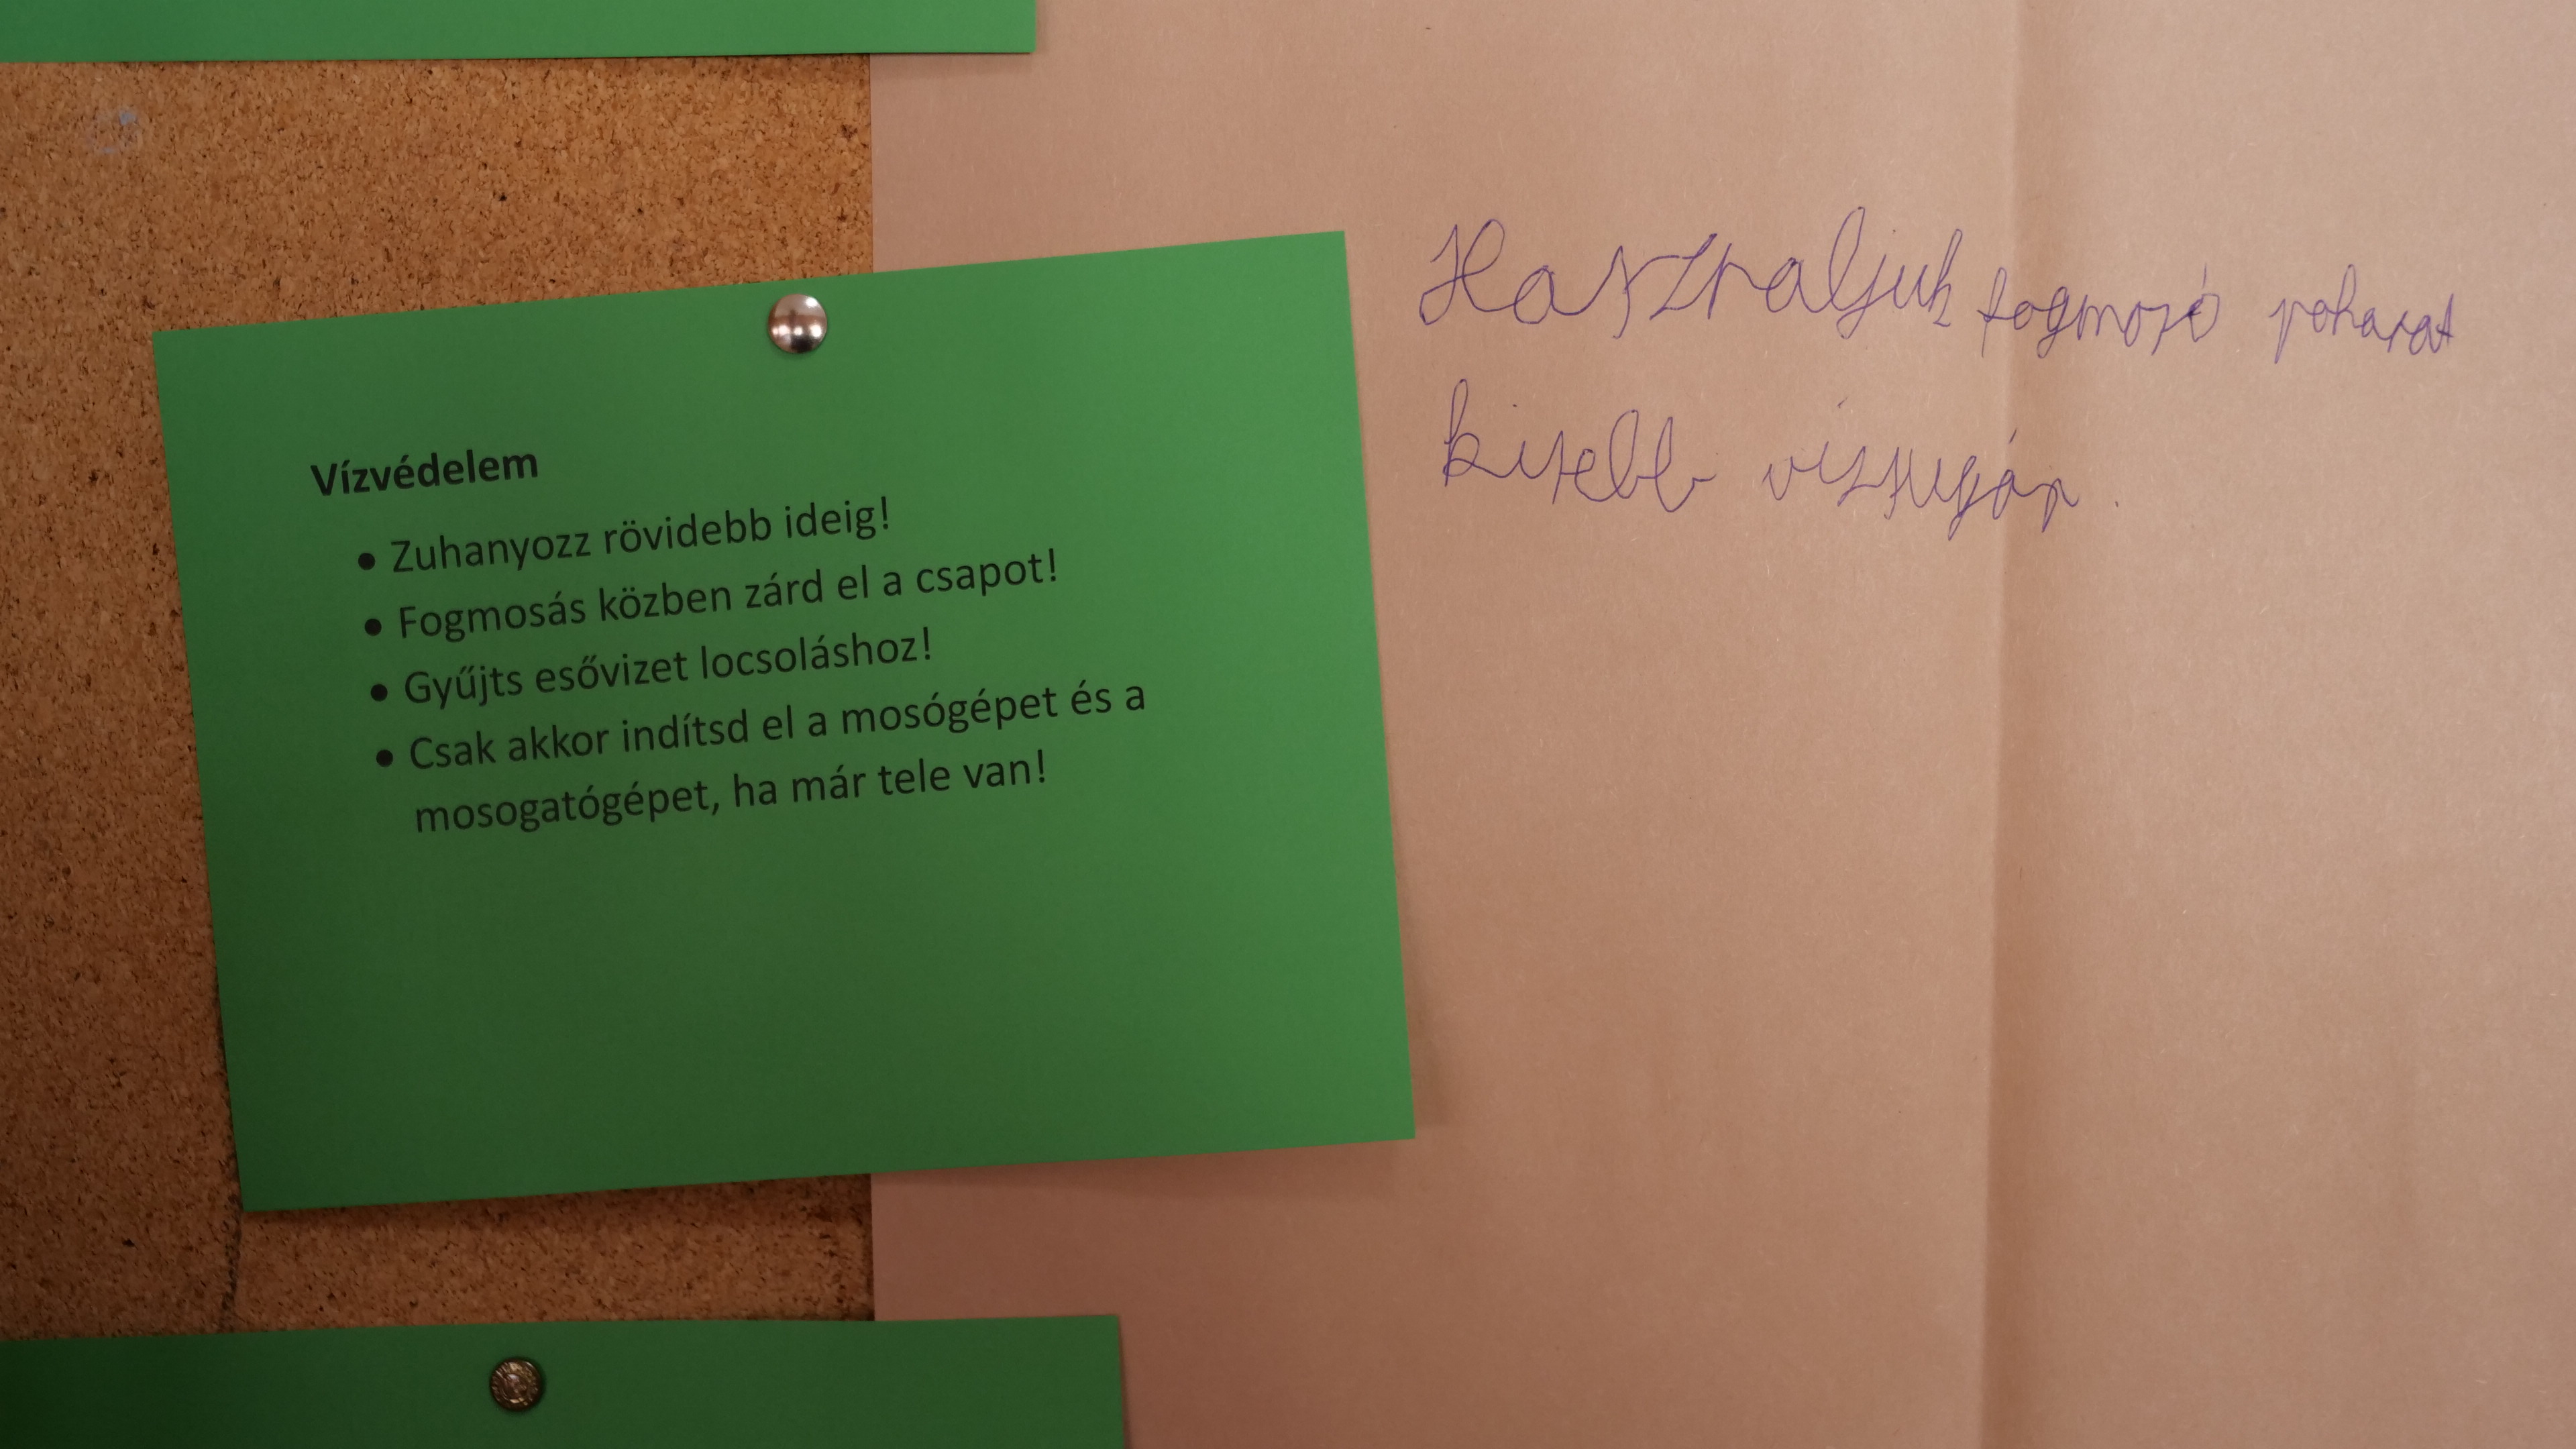 Vízvédelem
• Zuhanyozz rövidebb ideig!
• Fogmosás közben zárd el a csapot!
• Gyűjts esővizet locsoláshoz!
• Csak akkor indítsd el a mosógépet és a
mosogatógépet, ha már tele van!
Haszraljuk fogmosó poharat
kisebb vízsugár.